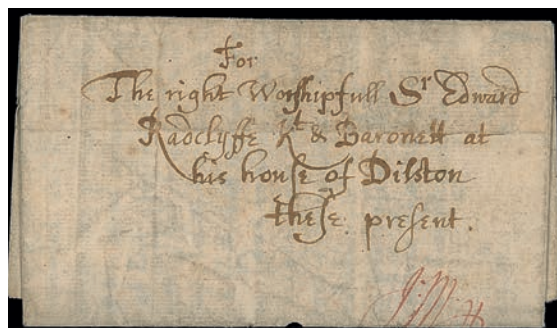 For
The right Worshipfull Sr Edward
Radclyffe Kt & Baronett at
his house of Dilston
these present.